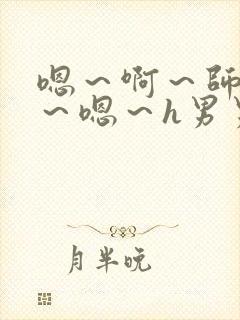 嗯～啊～師
～嗯～h男
月半晚